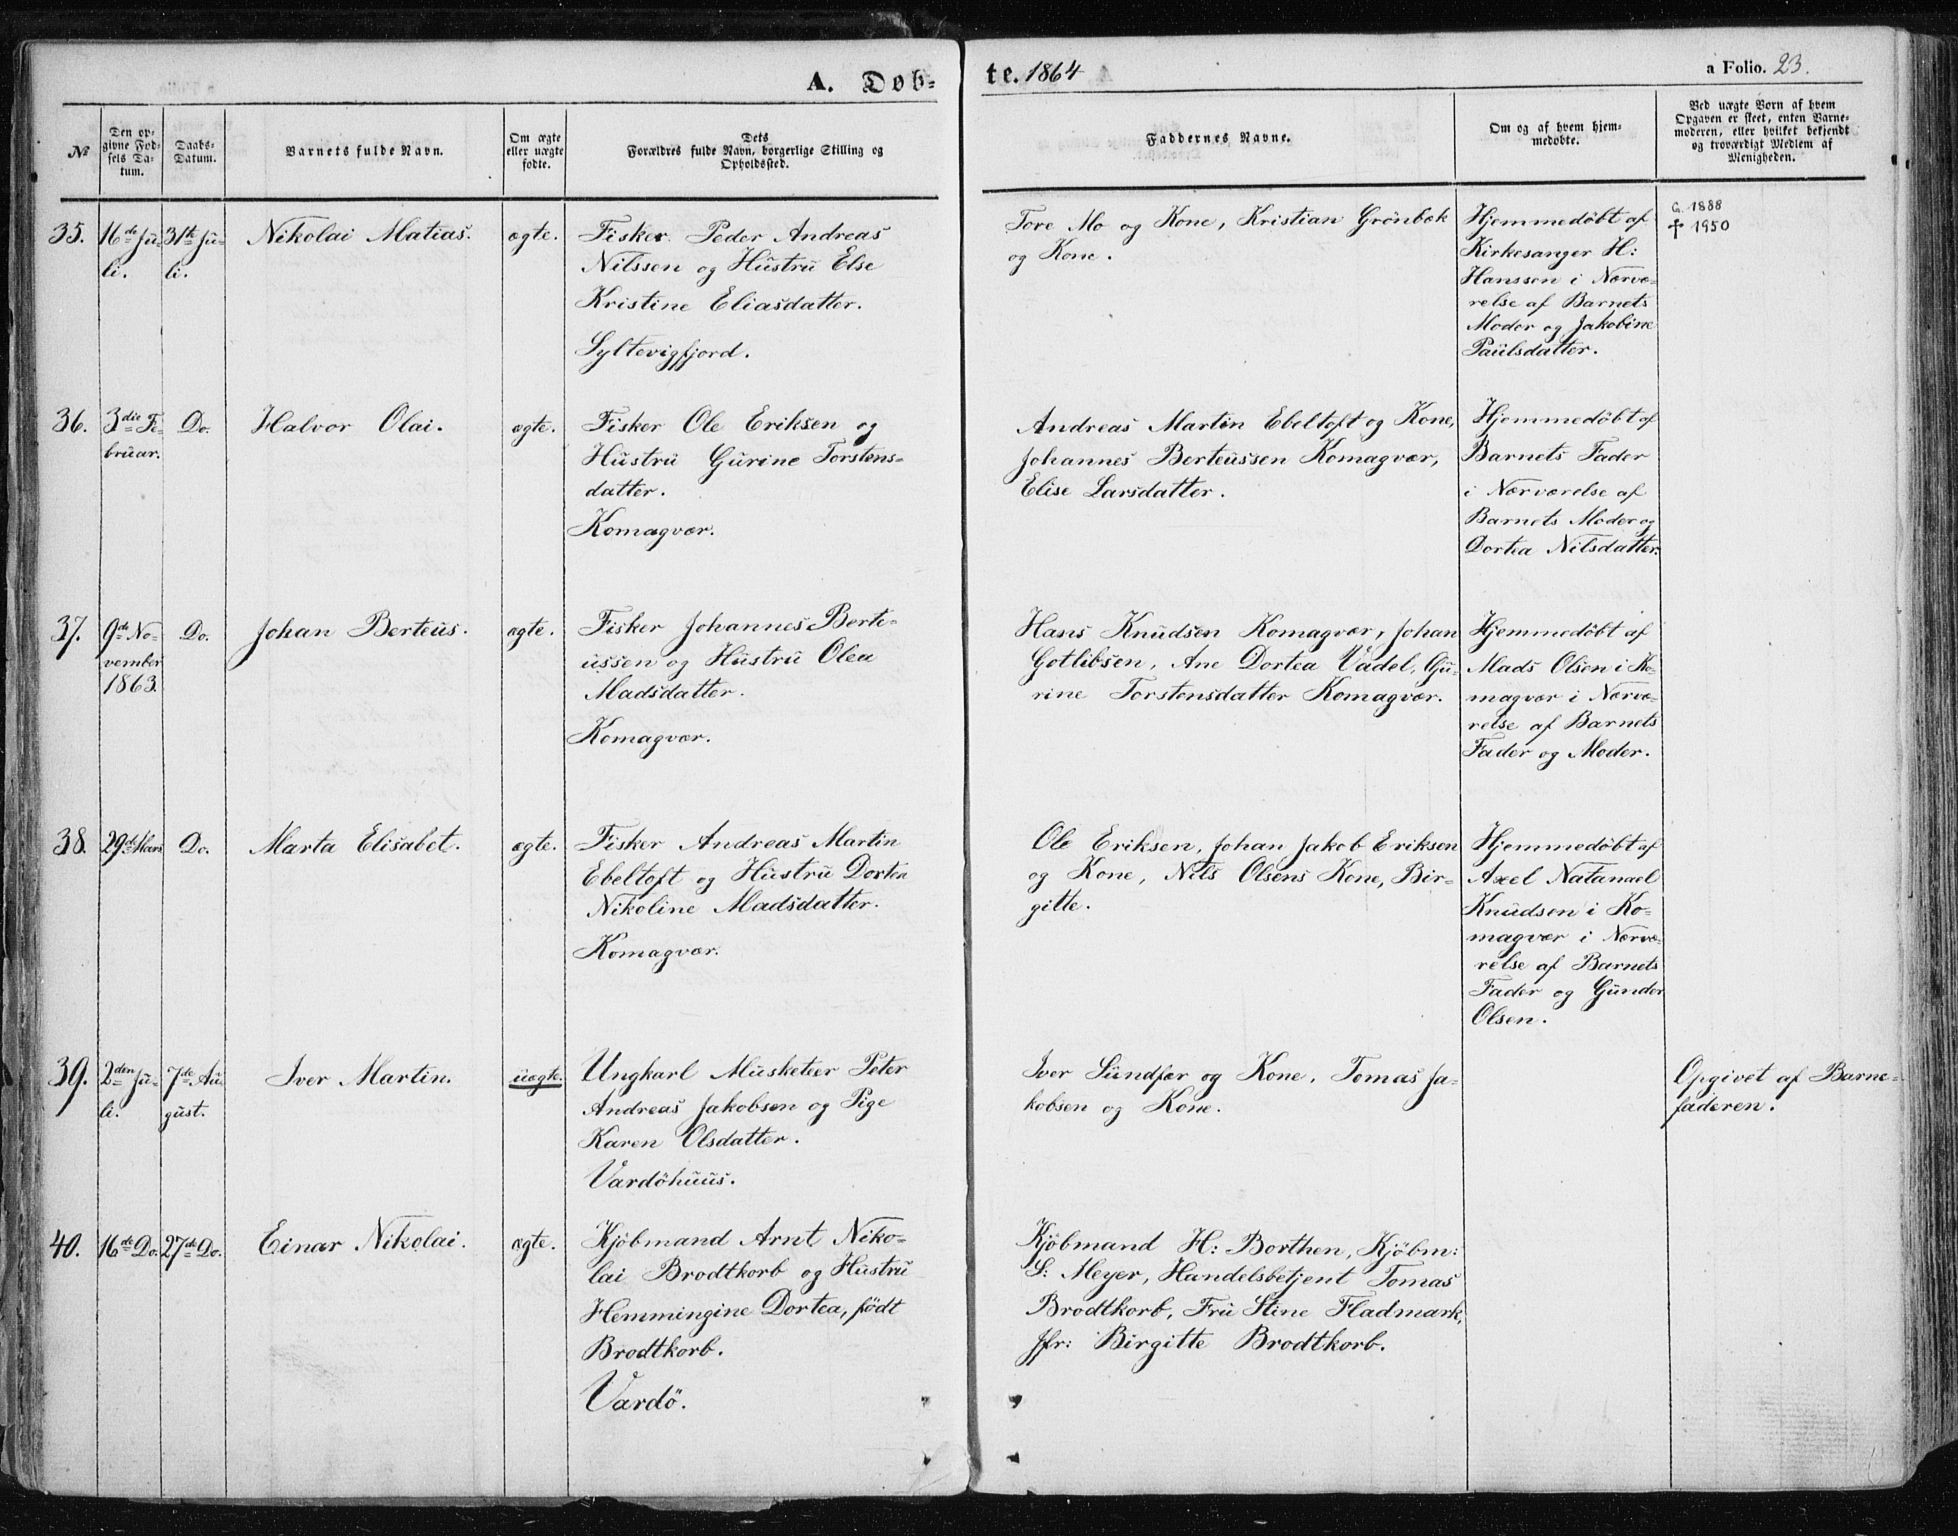 A. Døb-
te. 1864
a Folio. 23.
№
Den op-
givne Fød-
sels Da-
tum.
Daabs-
Datum.
Barnets fulde Navn.
Om ægte
eller uægte
fødte.
Dets
Forældres fulde Navn, borgerlige Stilling og
Opholdssted.
Faddernes Navne.
Om og af hvem hjem-
medøbte.
Ved uægte Børn af hvem
Opgaven er skeet, enten Barne-
moderen, eller hvilket bekjendt
og troværdigt Medlem af
Menigheden.
35.
16de Ju-
li.
31te Ju-
li.
Nikolai Matias.
ægte.
Fisker Peder Andreas
Nilssen og Hustru Else
Kristine Eliasdatter.
Syltevigfjord.
Tore Mo og Kone, Kristian Grønbæk
og Kone.
Hjemmedøbt af
Kirkesanger H:
Hanssen i Nærvæ-
relse af Barnets
Moder og Jakobine
Paulsdatter.
G. 1888
† 1950
36.
3die Fe-
bruar.
Do.
Halvor Olai.
ægte.
Fisker Ole Eriksen og
Hustru Gurine Torstens-
datter.
Komagvær.
Andreas Martin Ebeltoft og Kone,
Johannes Berteussen Komagvær,
Elise Larsdatter.
Hjemmedøbt af
Barnets Fader
i Nærværelse af
Barnets Moder og
Dortea Nilsdatter.
37.
9de No-
vember
1863.
Do.
Johan Berteus.
ægte.
Fisker Johannes Berte-
ussen og Hustru Olea
Madsdatter.
Komagvær.
Hans Knudsen Komagvær, Johan
Gotlibsen, Ane Dortea Vadel, Gu-
rine Torstensdatter Komagvær.
Hjemmedøbt af
Mads Olsen i Ko-
magvær i Nærvæ-
relse af Barnets
Fader og Moder.
38.
29de Mars
Do.
Marta Elisabet.
ægte.
Fisker Andreas Martin
Ebeltoft og Hustru Dortea
Nikoline Madsdatter.
Komagvær.
Ole Eriksen, Johan Jakob Eriksen
og Kone, Nils Olsens Kone, Bir-
gitte.
Hjemmedøbt af
Axel Natanael
Knudsen i Ko-
magvær i Nærvæ-
relse af Barnets
Fader og Gunder
Olsen.
39.
2den Ju-
li.
7de Au-
gust.
Iver Martin.
uægte.
Ungkarl Musketeer Peter
Andreas Jakobsen og Pige
Karen Olsdatter.
Vardöhuus.
Iver Sundfær og Kone, Tomas Ja-
kobsen og Kone.
Opgivet af Barne-
faderen.
40.
16de Do.
27de Do.
Einar Nikolai.
ægte.
Kjöbmand Arnt Niko-
lai Brodtkorb og Hustru
Hemmingine Dortea, födt
Brodtkorb.
Vardö.
Kjöbmand H: Borthen, Kjöbm:
S: Meyer, Handelsbetjent Tomas
Brodtkorb, Fru Stine Fladmark,
Jfr: Birgitte Brodtkorb.